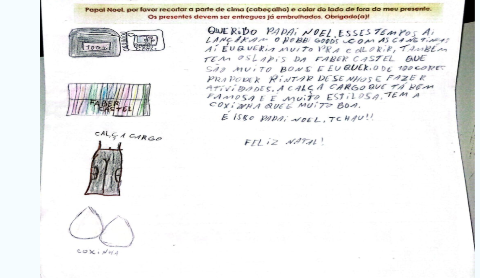 Papai Noel, por favor recortar a parte de cima (cabeçalho) e colar do lado de fora do meu presente.
Os presentes devem ser entregues já embrulhados. Obrigado(a)!
QUERIDO PAPAI NOEL, ESSES TEMPOS AI
LANÇARAM O BOBE GOODS COM AS CANETINHAS
AI EU QUERIA MUITO PRA COLORIR, TAMBÉM
TEM OS LAPIS DA FABER CASTEL QUE
SÃO MUITO BONS E EU QUERO DE 100 CORES
PRA PODER PINTAR DESENHOS E FAZER
ATIVIDADES. A CALÇA CARGO QUE TÁ BEM
FAMOSA E É MUITO ESTILOSA. TEM A
COXINHA QUE É MUITO BOA.
E ISSO PAPAI NOEL, TCHAU!!
FELIZ NATAL!
FABER
CASTEL
CALÇA CARGO
COXINHA